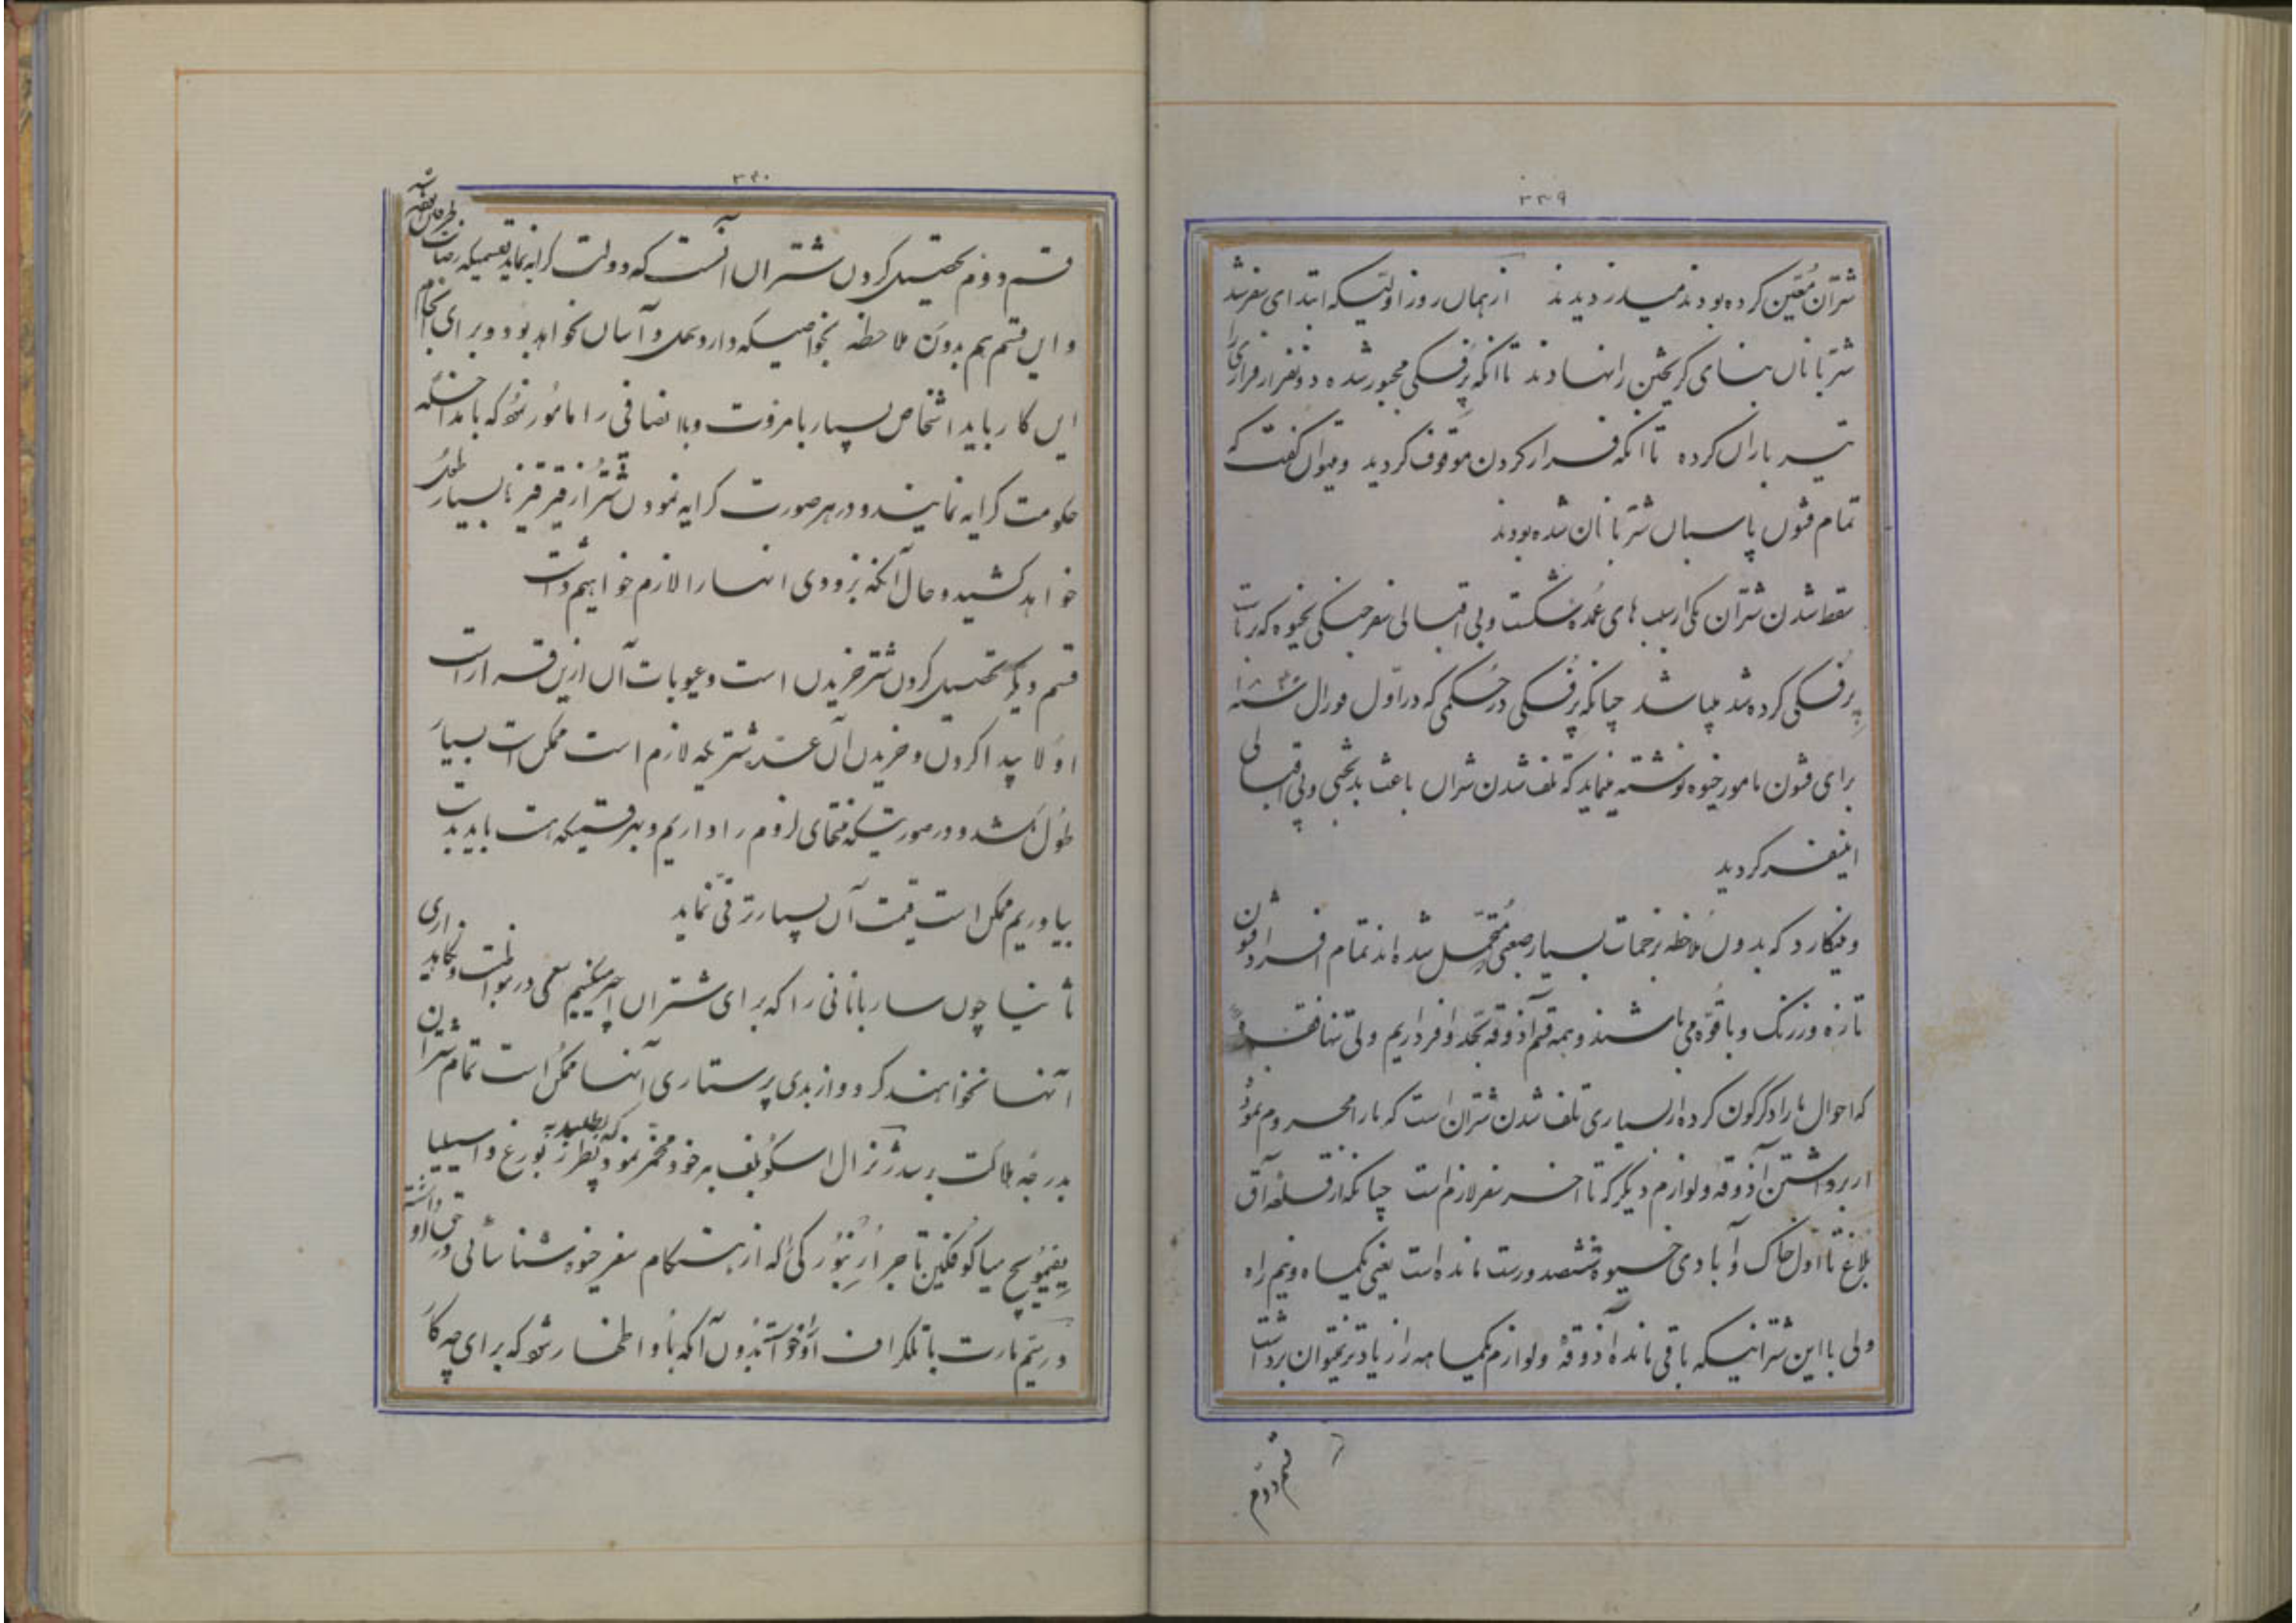 ۳۳۹
شتران معین کرده بودند میدزدیدند از همان روز اولیکه ابتدای سفر شد
شتربانان بنای گریختن را نهادند تا آنکه پرفسکی مجبور شده دو نفر از فراری را
تیرباران کرده تا آنکه فرار کردن موقوف گردید و میتوان گفت که
تمام قشون پاسبان شتربانان شده بودند
سقط شدن شتران یکی از سبب های عمده شکست و بی اقبالی سفر جنگی بخیوه که ریاست
پرفسکی کرده شد میباشد چنانکه پرفسکی در حکمی که در اول فورال سنه ۱۸۴۰
برای قشون مامور خیوه نوشته مینماید که تلف شدن شتران باعث بدبختی و بی اقبالی
اینسفر گردید
و مینگارد که بدون ملاحظه بزحمات بسیار صعبی متحمل شده اند تمام افراد قشون
تازه و زرنگ و باقوه می باشند و همه قسم آذوقه بحد وافر داریم ولی تنها فقره
که احوال ما را دگرگون کرده از بسیاری تلف شدن شتران است که ما را محروم نموده
از برداشتن آذوقه و لوازم دیگر که تا آخر سفر لازم است چنانکه از قلعه آق
بلاغ تا اول خاک و آبادی خیوه ششصد ورست مانده است یعنی یکماه و نیم راه
ولی با این شترانیکه باقی مانده آذوقه و لوازم یکماهه را زیادتر نمیتوان برداشت
قسم دوم
۳۴۰
قسم دوم تحصیل کردن شتران آنست که دولت کرایه نماید بقسمیکه رضایت طرفین بعمل
و این قسم هم بدون ملاحظه بخواصیکه دارد سهل و آسان نخواهد بود و برای انجام
این کار باید اشخاص بسیار بامروت و با انصافی را مامور نمود که با مداخله
حکومت کرایه نمایند و در هر صورت کرایه نمودن شتر از قیرقیزها بسیار طول
خواهد کشید و حال آنکه بزودی آنها را لازم خواهیم داشت
قسم دیگر تحصیل کردن شتر خریدن است و عیوبات آن ازین قرار است
اولا پیدا کردن و خریدن آن عدد شتریکه لازم است ممکن است بسیار
طول بکشد و در صورتیکه منتهای لزوم را داریم و بهر قسمیکه هست باید بدست
بیاوریم ممکن است قیمت آن بسیار ترقی نماید
ثانیا چون ساربانانی را که برای شتران اجیر میکنیم سعی در مواظبت و نگاهداری
آنها نخواهند کرد و از بدی پرستاری آنها ممکن است تمام شتران
بدرجه هلاکت برسد ژنرال اسکوبلف بر خود مخمر نمود که بطلبد به پطرزبورغ و اسیلیا
یفیمویچ میاکوفکین تاجر ارنبورکی را که از هنگام سفر خیوه شناسائی در حق او داشته
در بیستم مارت با تلگراف او را خواست بدون آنکه باو اظهار شود که برای چه کار